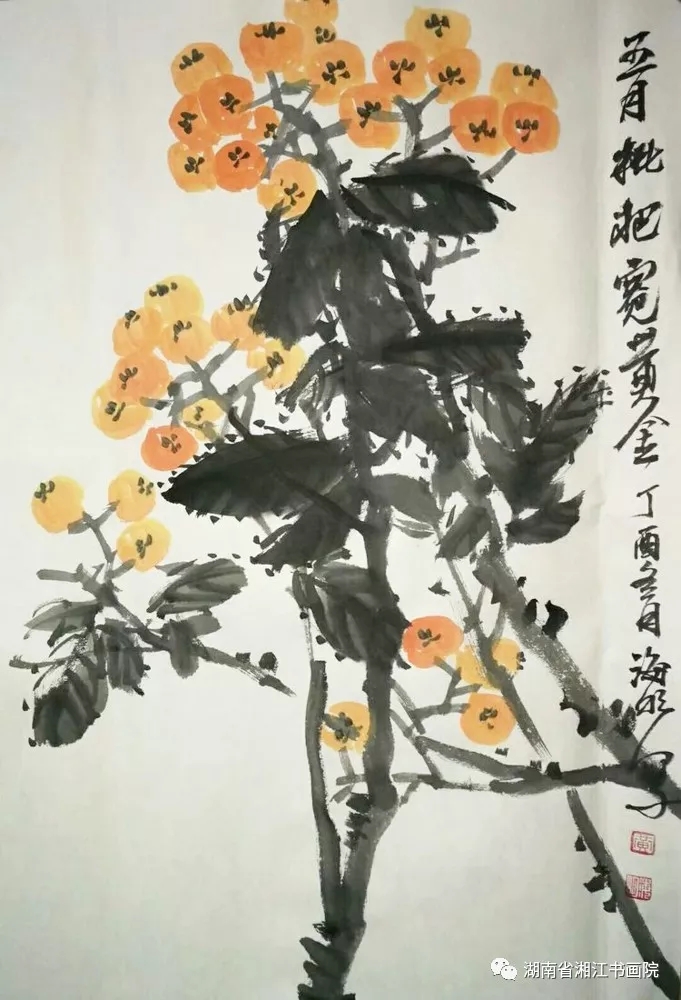 五月枇杷
黄金
丁酉冬月海
湖南省湘江书画院